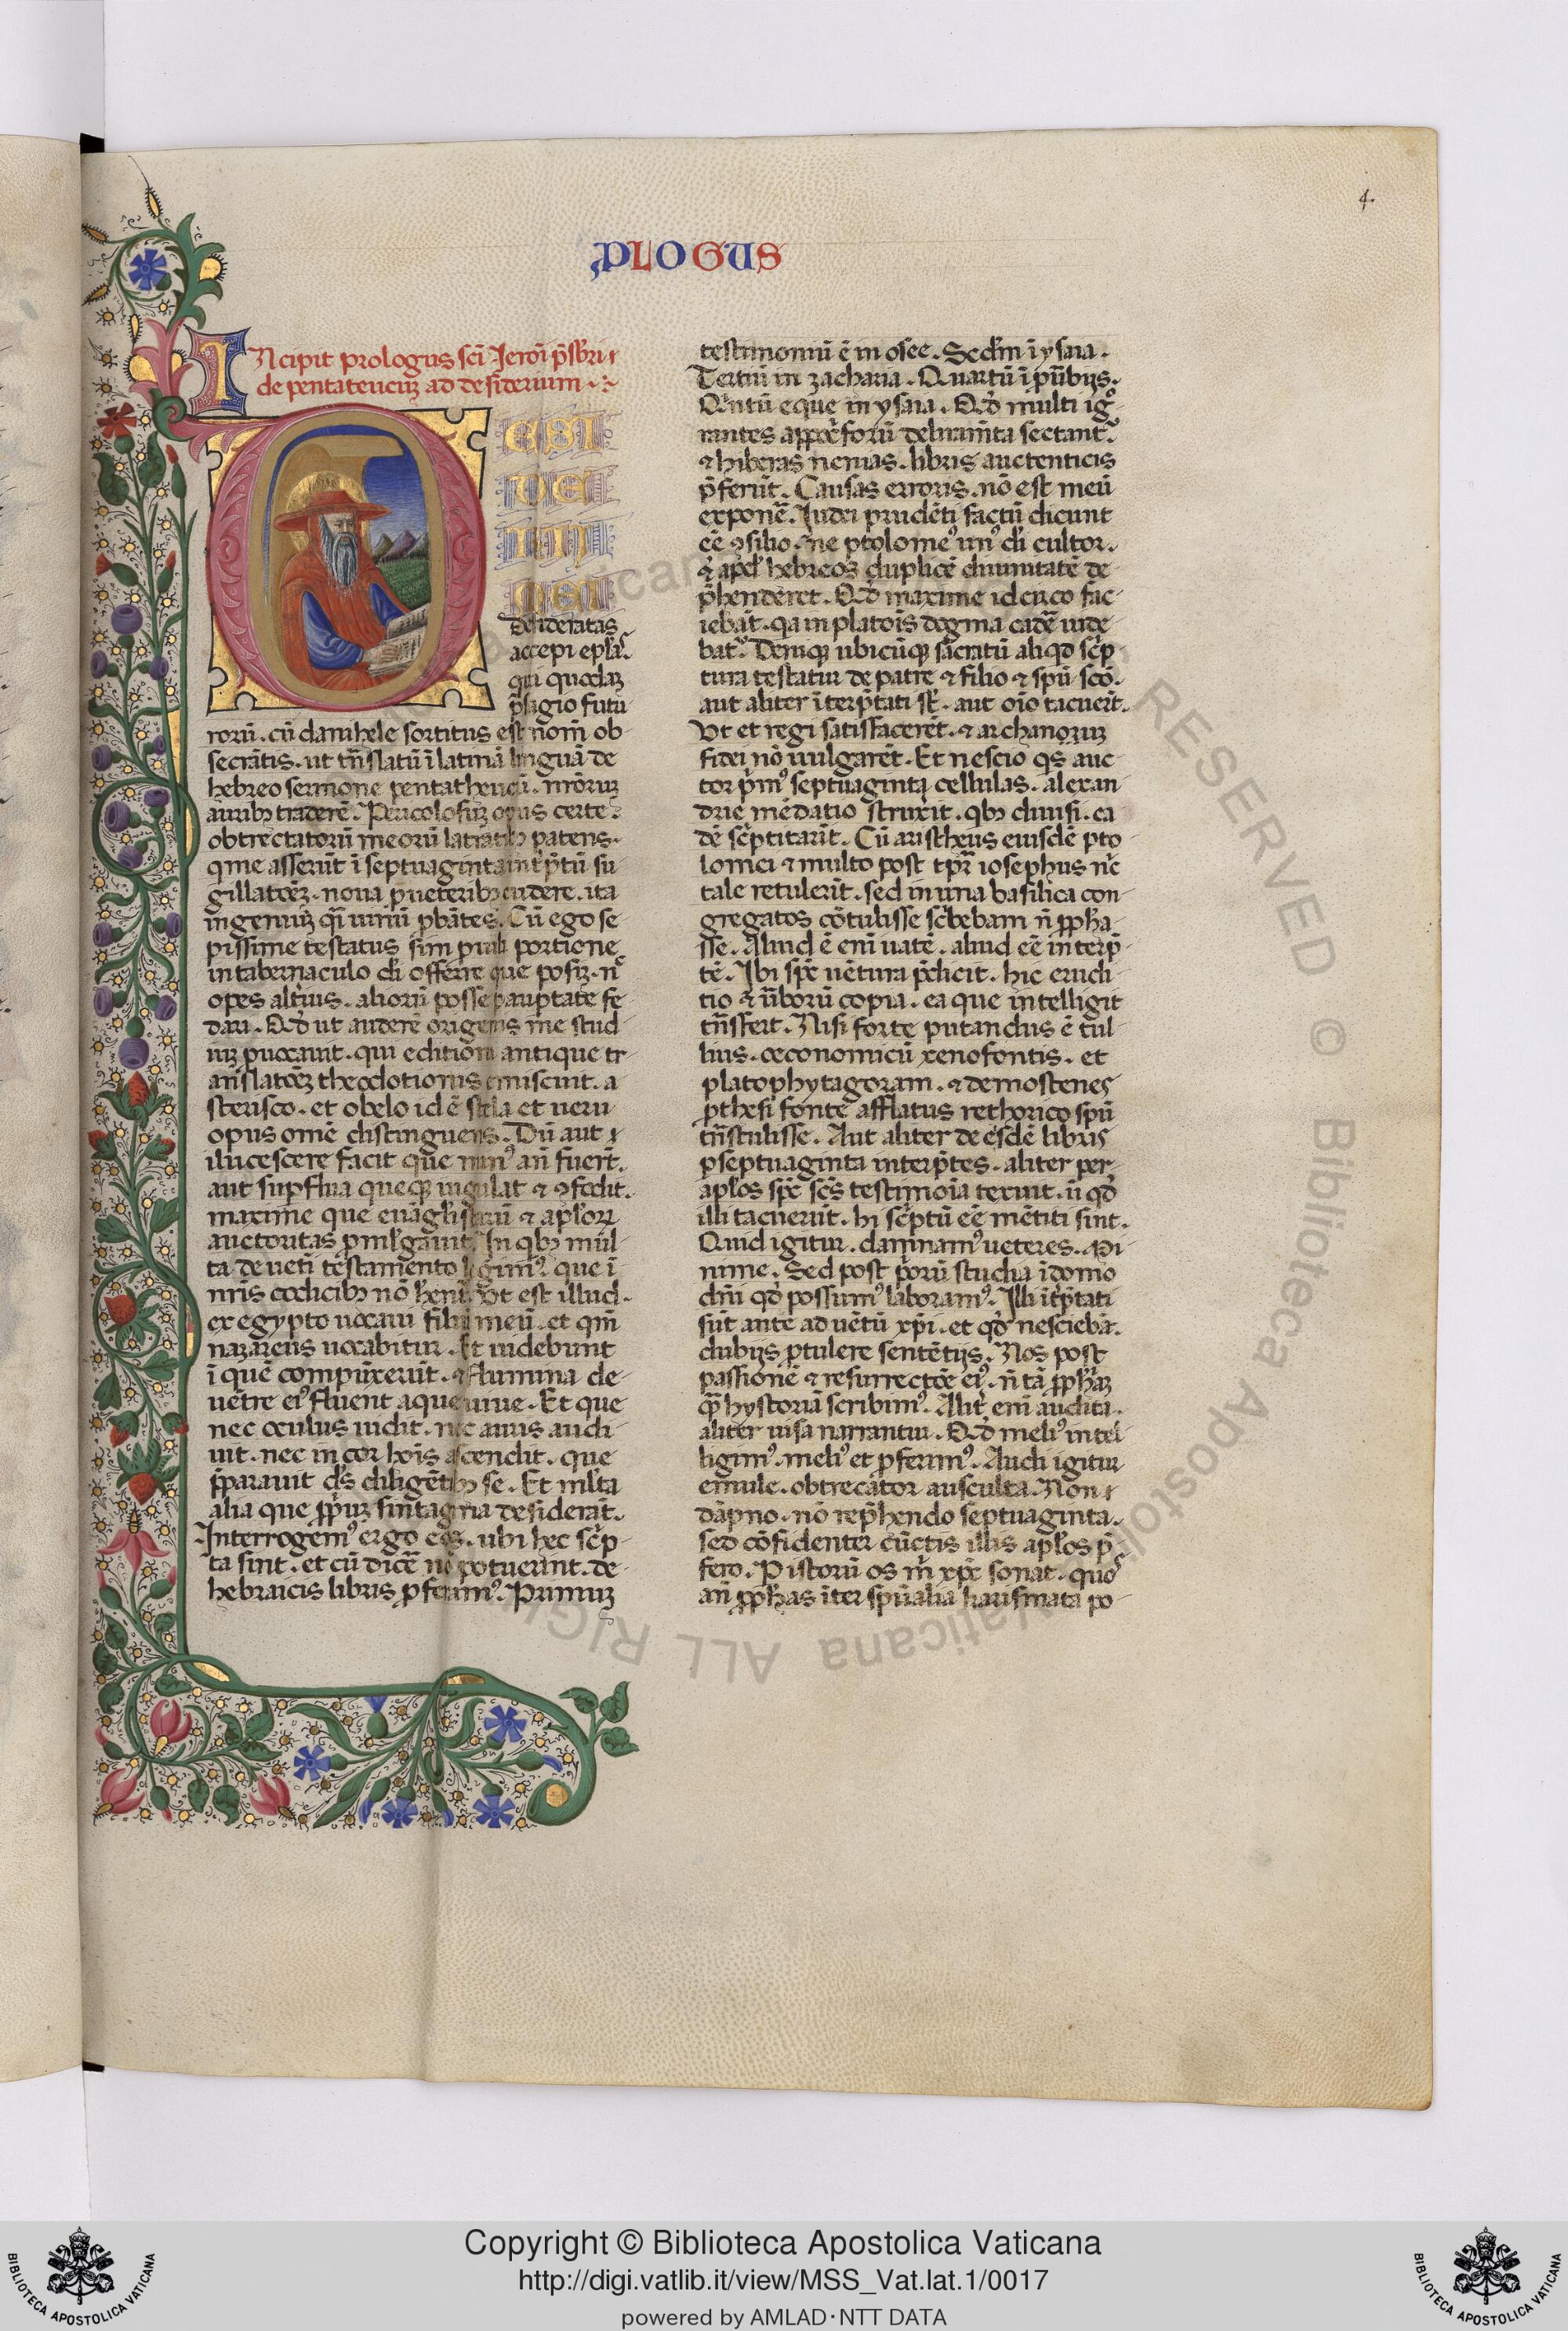 4.
PLOGUS
INcipit prologus sci Ieroi p̄sbri
de pentateucuz ad desiderium
DESI
DE
RII
MEI
desideratas
accepi epl̄as.
qui quodaz
p̄sagio futu
rorū. cū damhele sortitus est nom̄ ob
secrātis. ut trn̄slatū ī latinā linguā de
hebreo sermone pentatheucū. nr̄oruz
auribꝫ traderē. Periculosuz opus certe.
obtrectatorū meorū latratibꝫ patens.
qme asserūt ī septuaginta int̄p̄tū su
gillatōez. noua p̄ ueteribꝫ cudere. ita
ingeniuz q̄i uinū ꝓbātes. Cū ego se
pissime testatus sim ꝓ uili portione
in tabernaculo dī offerre que possiz. nc̄
opes alt̄ius. aliorū posse paup̄tate fe
dari. Qd̄ ut auderē origenis me stud
iuz ꝓuocauit. qui editioni antique tr
anslatōez theodotionis miscuit. a
sterisco. et obelo id ē stella et ueru
opus omē distinguens. Dū aut
ilucescere facit que minꝰ an̄ fuerāt.
aut suꝑflua queqꝫ iugulat ⁊ ꝯfodit.
maxime que euāgl̄istarū ⁊ apl̄oꝝ
auctoritas ꝓmlgauit. In qbꝫ mul
ta de uet̄i testamento legimꝰ. que ī
nr̄is codicibꝫ nō hēnt̄. Vt est illud.
ex egypto uocaui filiū meū. et qm̄
nazareus uocabitur. Et uidebunt
ī quē compūxerūt. ⁊ flumina de
uētre eiꝰ fluent aque uiue. Et que
nec oculus uidit. nec auris audi
uit. nec in cor hois ascendit. que
p̄parauit ds̄ diligētibꝫ se. Et ml̄ta
alia que ꝓpriuz sintagma desiderāt.
Interrogemꝰ ergo eos. ubi hec sc̄p
ta sint. et cū dicē nō potuerint. de
hebraicis libris ꝓferamꝰ. Primuz
testimoniū ē in osee. Secd̄m ī ysaia.
Tertiū in zacharia. Quartū ī ꝓu̅bijs.
Qntū eque in ysaia. Qd̄ multi ig
rantes apocforū deliramta sectant̄.
⁊ hiberas nenias. libris auctenticis
p̄ferūt. Causas erroris. nō est meū
exponē. Iudei prudēti factū dicunt
eē ꝯsilio. ne ptolomeꝰ unꝰ dī cultor.
⁊ apd̄ hebreos duplicē diuinitatē de
p̄henderet. Qd̄ maxime idcirco fac
iebāt. qa in platois dogma cadē uide
bat̄. Deniqꝫ ubicūqꝫ sacratū aliqd sc̄p
tura testatur de patre ⁊ filio ⁊ spū scō.
aut aliter īterp̄tati st̄. aut oio tacuerūt.
Vt et regi satisfacerēt. ⁊ archanoruz
fidei nō uulgarēt. Et nescio qs̄ auc
tor pmꝰ septuaginta cellulas. alexan
drie mēdatio struxit. qbꝫ diuisi. ea
dē sc̄ptitarūt. Cū aristheus eiusdē pto
lomei ⁊ multo post tpr̄ iosephus nc̄
tale retulerūt. sed in una basilica con
gregatos cōtulisse sc̄bebam n̄ ꝓpha
sse. Aliud ē eni uatē. aliud eē interp̄
tē. Ibi spc̄ uētura p̄dicit. hic erudi
tio ⁊ u̅borū copia. ea que intelligit
trn̄sfert. Nisi forte putandus ē tul
lius. œconomicū xenofontis. et
plato phytagoram. ⁊ demostenes
ꝓthesifonte afflatus rethorico spū
trn̄stulisse. Aut aliter de eisdē libris
ꝑ septuaginta interp̄tes. aliter per
apl̄os spc̄ scs̄ testimoia texuit. ū qd̄
illi tacuerūt. hi sc̄ptū eē mētiti sint.
Quid igitur. damnamꝰ ueteres. Mi
nime. Sed post prorū studia ī domo
dnī qd̄ possumꝰ laboramꝰ. Illi it̄p̄tati
sūt ante aduētū xp̄i. et qd̄ nesciebāt.
dubijs ꝓtulere sentētijs. Nos post
passionē ⁊ resurrectōe eiꝰ. n̄ tā ꝓphaz
qꝫ hystoriā scribimꝰ. Alit̄ eni audita.
aliter uisa narrantur. Qd̄ meliꝰ intel
ligimꝰ. meliꝰ et ꝓferimꝰ. Audi igitur
emule. obtrecator ausculta. Non
dāpno. nō rep̄hendo septuaginta.
sed cōfidenter cūctis illis apl̄os p̄
fero. Pistorū os m̄ xpc̄ sonat. quos
an̄ ꝓphas īter spu̅alia karismata po
Copyright © Biblioteca Apostolica Vaticana
http://digi.vatlib.it/view/MSS_Vat.lat.1/0017
powered by AMLAD·NTT DATA
BIBLIOTECA APOSTOLICA VATICANA
BIBLIOTECA APOSTOLICA VATICANA